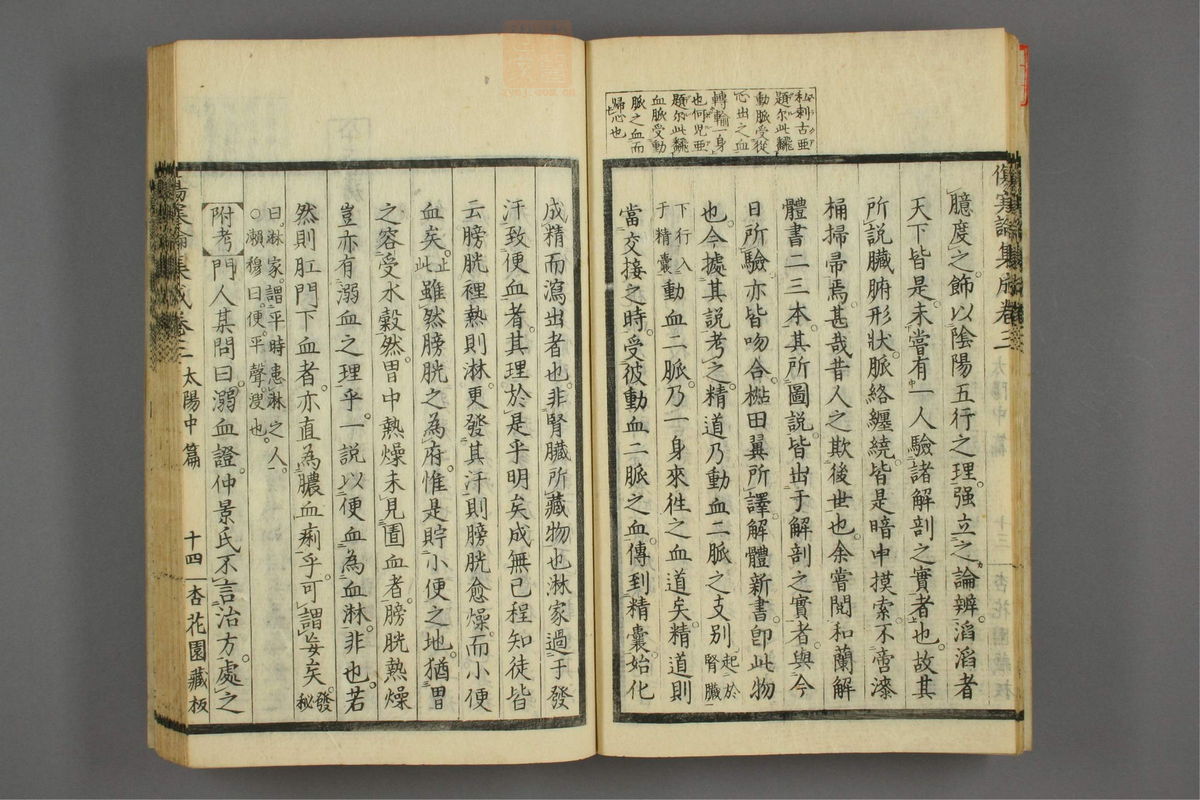 私刺古亜
題尓此飜
動脈受從
心出之血
轉輸一身
也何児亜
題尓此飜
血脈受動
脈之血而
歸心也
傷寒論集成卷三
臆度之飾以陰陽五行之理强立之論辨滔滔者
天下皆是未嘗有一人驗諸解剖之實者也故其
所說臟腑形狀脈絡纏繞皆是暗中摸索不啻漆
桶掃帚焉甚哉昔人之欺後世也余嘗閱和蘭解
體書二三本其所圖說皆出于解剖之實者與今
日所驗亦皆吻合椙田翼所譯解體新書卽此物
也今據其說考之精道乃動血二脈之支別起於腎臟
下行入于精囊動血二脈乃一身來徃之血道矣精道則
當交接之時受彼動血二脈之血傳到精囊始化
成精而瀉出者也非腎臟所藏物也淋家過于發
汗致便血者其理於是乎明矣成無己程知徒皆
云膀胱裡熱則淋更發其汗則膀胱愈燥而小便
血矣止此雖然膀胱之為府惟是貯小便之地猶胃
之容受水穀然胃中熱燥未見圊血者膀胱熱燥
豈亦有溺血之理乎一說以便血為血淋非也若
然則肛門下血者亦直為膿血痢乎可謂妄矣發秘
曰淋家謂平時患淋之人
○瀨穆曰便平聲溲也
附考門人某問曰溺血證仲景氏不言治方處之
傷寒論集成卷三
太陽中篇
十四
杏花園藏板